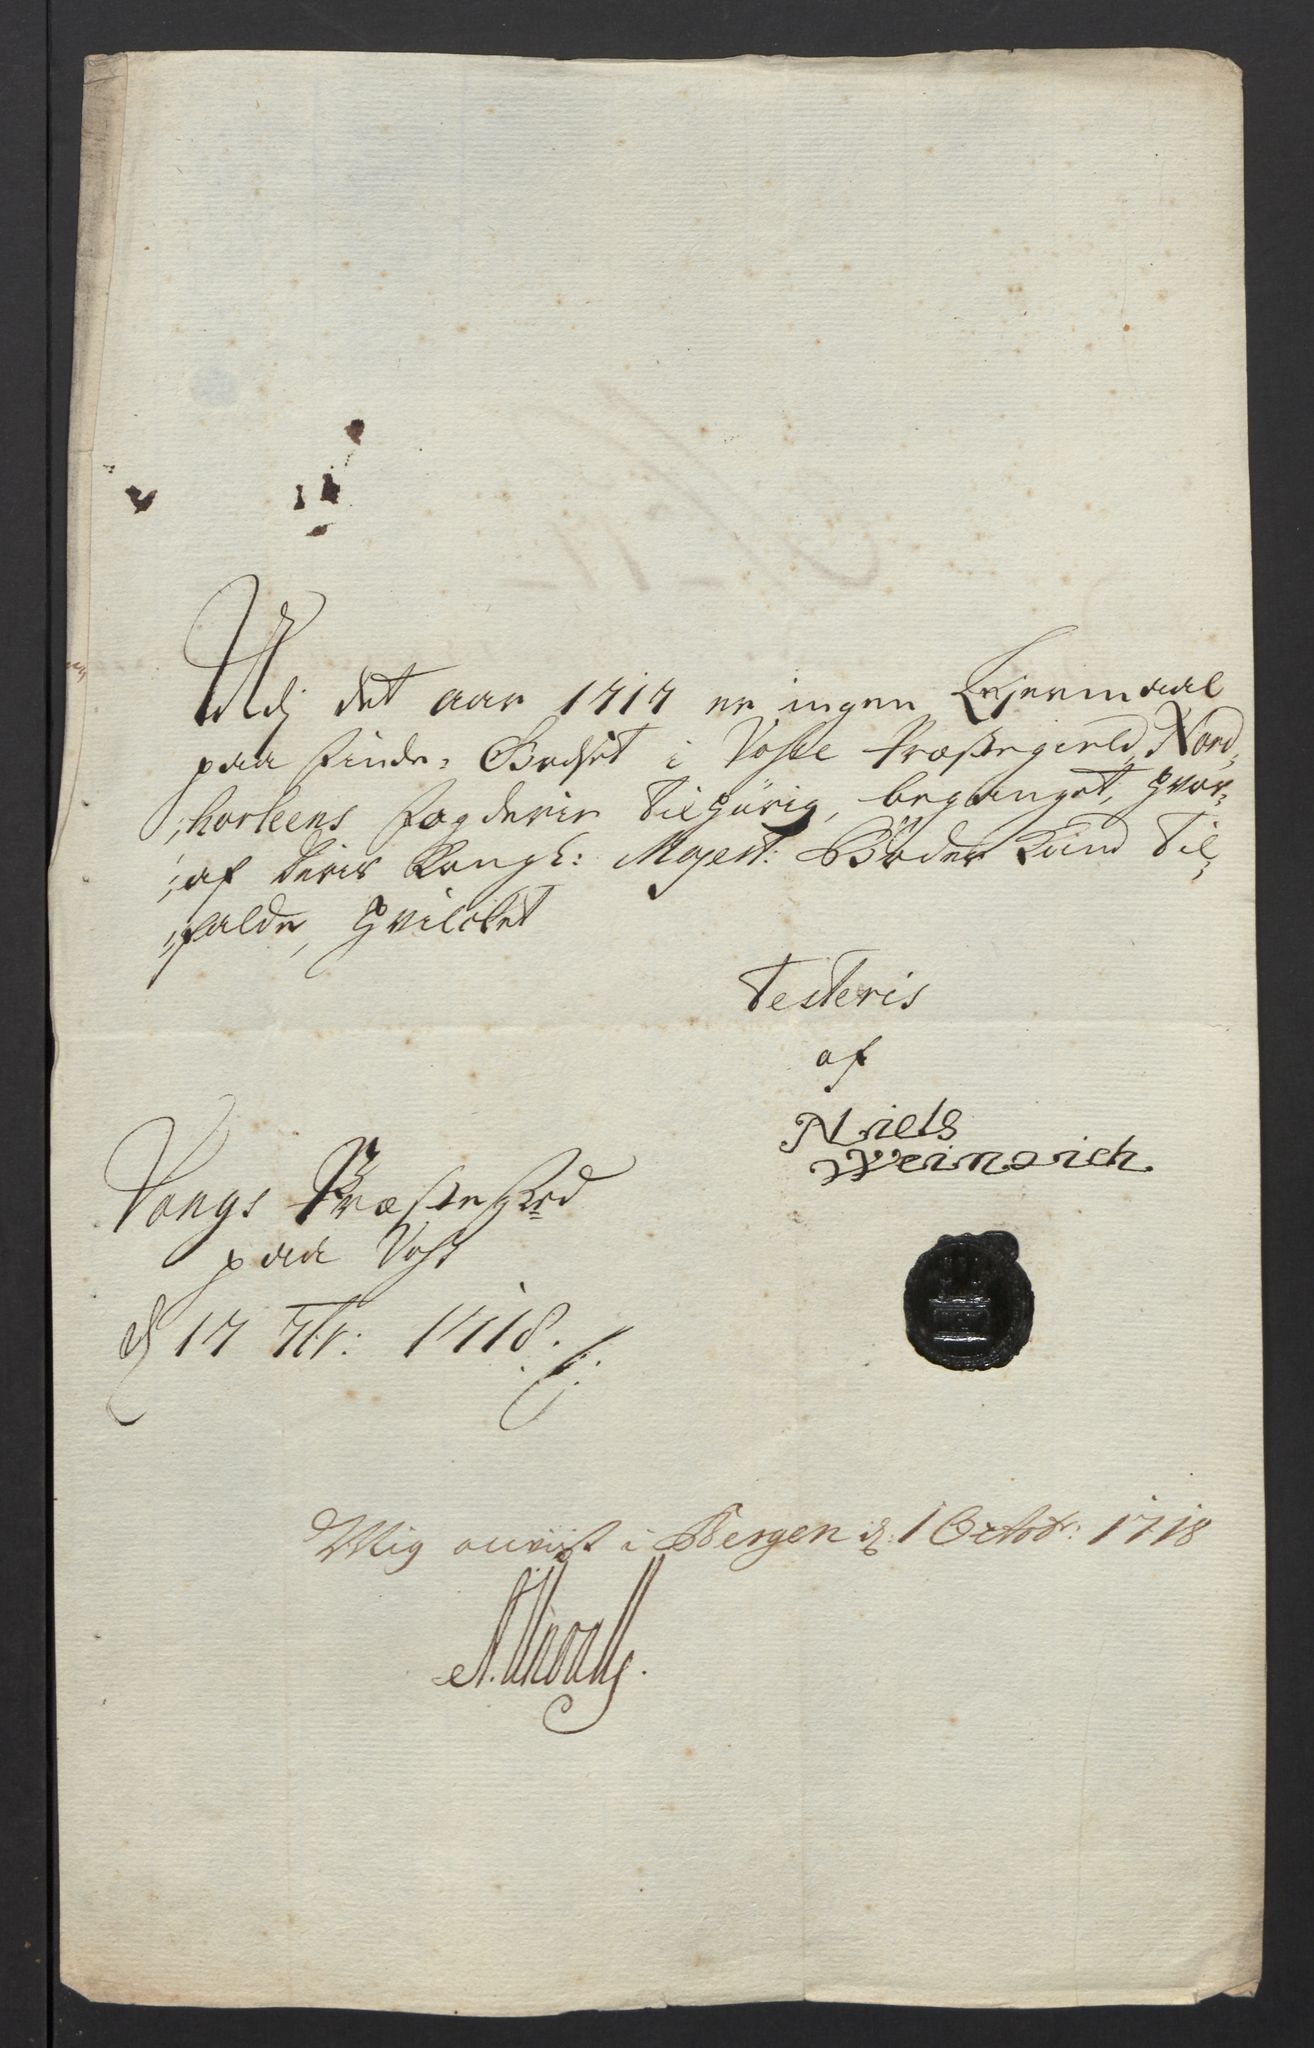 Udj det aar 1717 er ingen Lejermaal
paa Finde-Godset i Vosse Præstegield, Nord-
horleens Fogderie tilhörig, beganget, hvor-
af deris Kongl: Majest: Böder kund til-
falde, hvilchet
Testeris
af
Niels
Weinwich
Vangs Præstegrd
paa Voss
d 17 7br: 1718.
Mig anviist i Bergen d: 1 Octobr: 1718